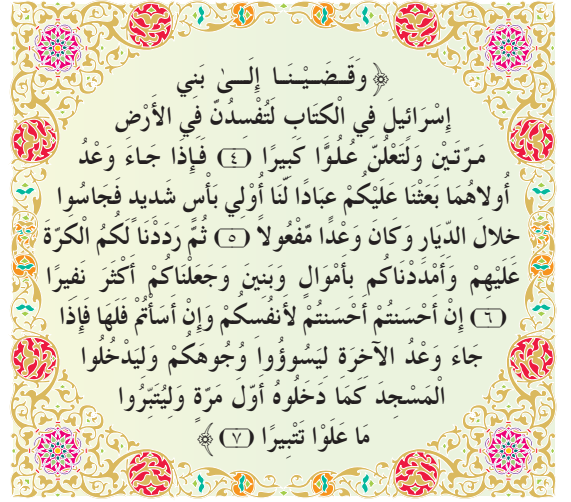 ﴿ وَقَـضَـيْـنَـا إِلَـــىٰ بَنِي
إِسْرَائِيلَ فِي الْكِتَابِ لَتُفْسِدُنَّ فِي الأَرْضِ
مَـرَّتَيْنِ وَلَتَعْلُنَّ عُـلُوًّا كَبِيرًا (٤) فَـإِذَا جَـاءَ وَعْدُ
أُولاهُمَا بَعَثْنَا عَلَيْكُمْ عِبَادًا لَّنَا أُوْلِي بَأْسٍ شَدِيدٍ فَجَاسُوا
خِلالَ الدِّيَارِ وَكَانَ وَعْدًا مَّفْعُولاً (٥) ثُمَّ رَدَدْنَا لَكُمُ الْكَرَّةَ
عَلَيْهِمْ وَأَمْدَدْنَاكُم بِأَمْوَالٍ وَبَنِينَ وَجَعَلْنَاكُمْ أَكْثَرَ نَفِيرًا
(٦) إِنْ أَحْسَنتُمْ أَحْسَنتُمْ لأَنفُسِكُمْ وَإِنْ أَسَأْتُمْ فَلَهَا فَإِذَا
جَاءَ وَعْدُ الآخِرَةِ لِيَسُوؤُوا وُجُوهَكُمْ وَلِيَدْخُلُوا
الْمَسْجِدَ كَمَا دَخَلُوهُ أَوَّلَ مَرَّةٍ وَلِيُتَبِّرُوا
مَا عَلَوْا تَتْبِيرًا (٧) ﴾